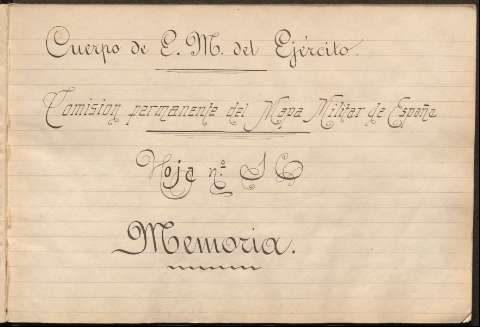 Cuerpo de E. M. del Ejército.
Comision permanente del Mapa Militar de España
Hoja nº
Memoria.